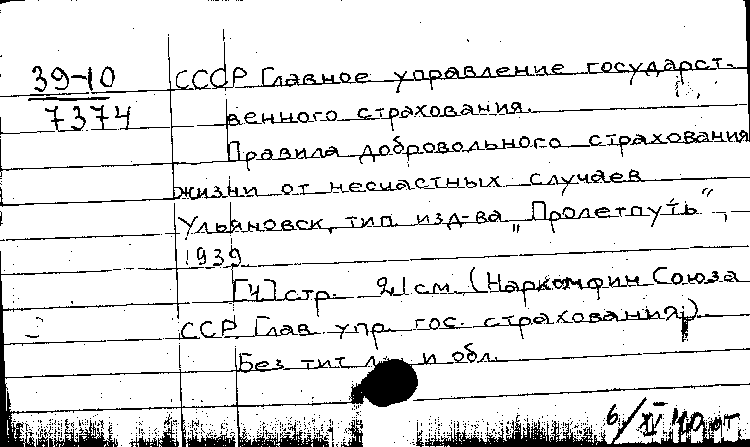 39-10
7374
СССР Главное управление государст-
венного страхования.
Правила добровольного страхования
жизни от несчастных случаев
Ульяновск, тип. изд-ва „Пролетпуть",
1939
[4] стр. 21 см. (Наркомфин Союза
ССР Глав. упр. гос. страхования).
Без тит. л. и обл.
6/IV